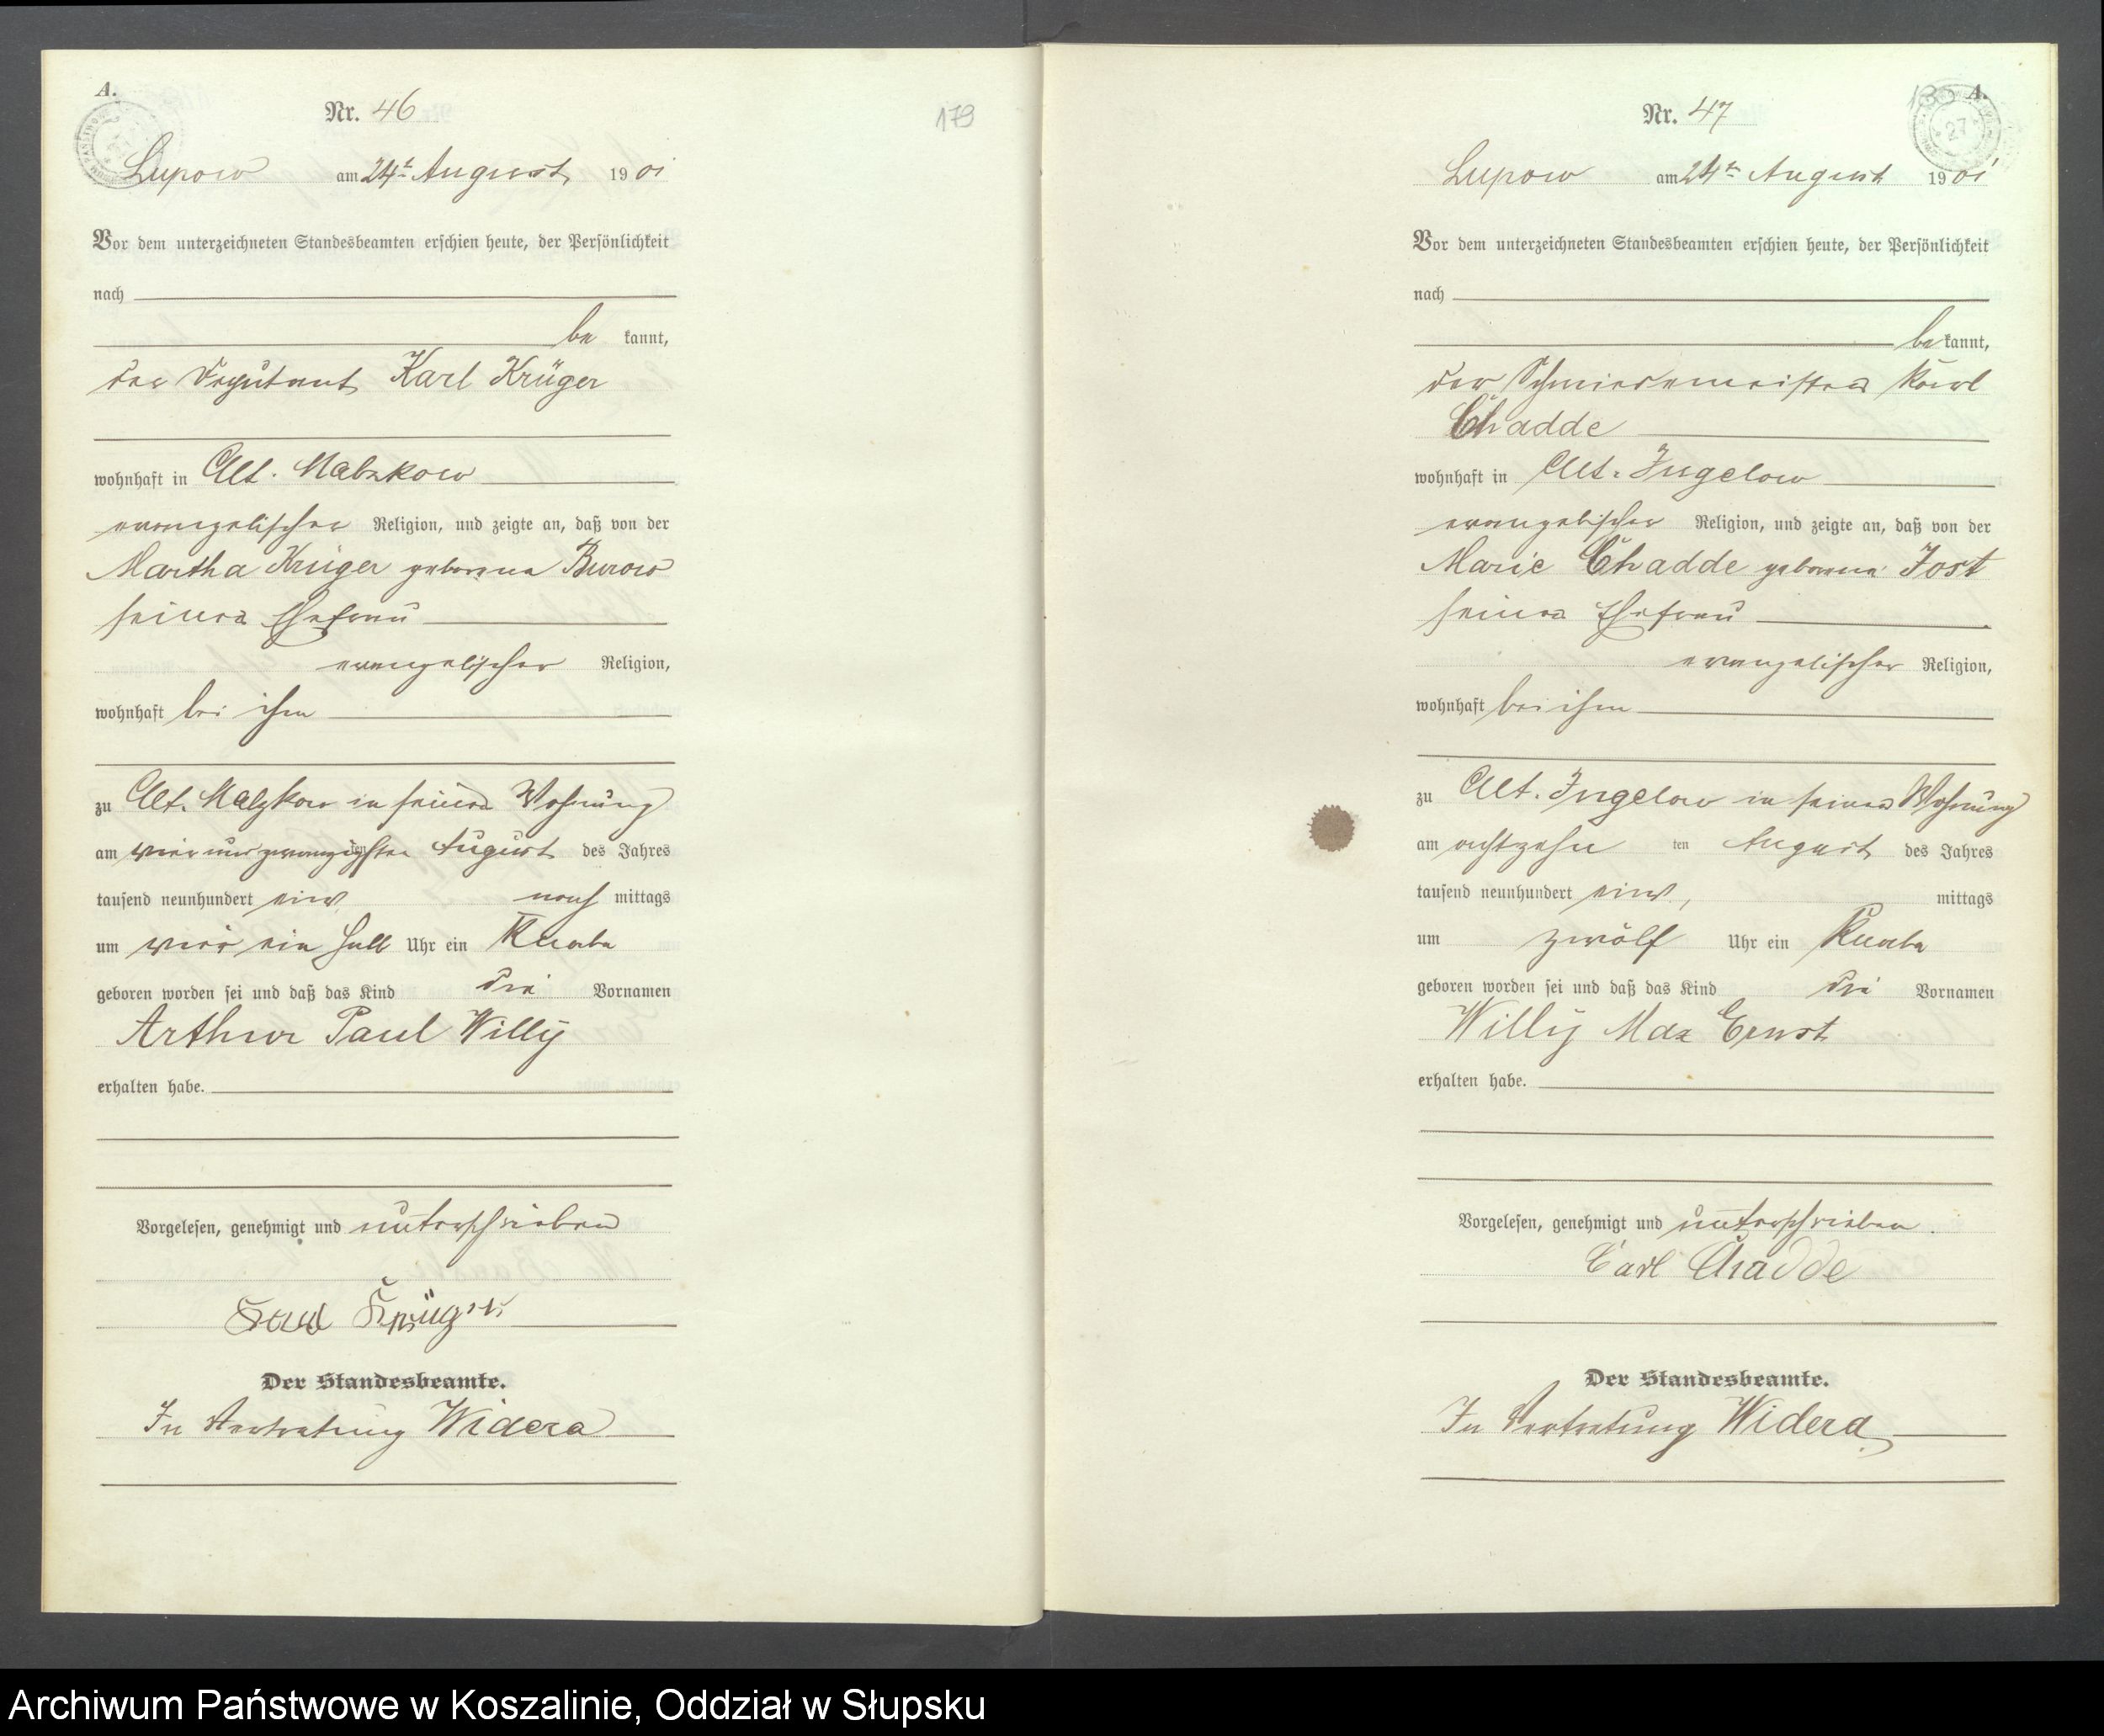 A.
Nr. 46
Lupow am 24t August 1901
Vor dem unterzeichneten Standesbeamten erschien heute, der Persönlichkeit
nach
be kannt,
der Deputant Karl Krüger
wohnhaft in Alt. Malzkow
evangelischer Religion, und zeigte an, daß von der
Martha Krüger geborene Burow
seiner Ehefrau
evangelischer Religion,
wohnhaft bei ihm
zu Alt. Malzkow in seiner Wohnung
am vierundzwanzigsten August des Jahres
tausend neunhundert eins nach mittags
um vier ein halb Uhr ein Knabe
geboren worden sei und daß das Kind die Vornamen
Arthur Paul Willy
erhalten habe.
Vorgelesen, genehmigt und unterschrieben
Karl Krüger
Der Standesbeamte.
In Vertretung Widera
179
A.
27
Nr. 47
Lupow am 24t August 1901
Vor dem unterzeichneten Standesbeamten erschien heute, der Persönlichkeit
nach
be kannt,
der Schmiedemeister Karl
Chadde
wohnhaft in Alt. Jugelow
evangelischer Religion, und zeigte an, daß von der
Marie Chadde geborene Jost
seiner Ehefrau
evangelischer Religion,
wohnhaft bei ihm
zu Alt. Jugelow in seiner Wohnung
am achtzehn ten August des Jahres
tausend neunhundert eins, mittags
um zwölf Uhr ein Knabe
geboren worden sei und daß das Kind die Vornamen
Willy Max Ernst
erhalten habe.
Vorgelesen, genehmigt und unterschrieben.
Carl Chadde
Der Standesbeamte.
In Vertretung Widera
Archiwum Państwowe w Koszalinie, Oddział w Słupsku